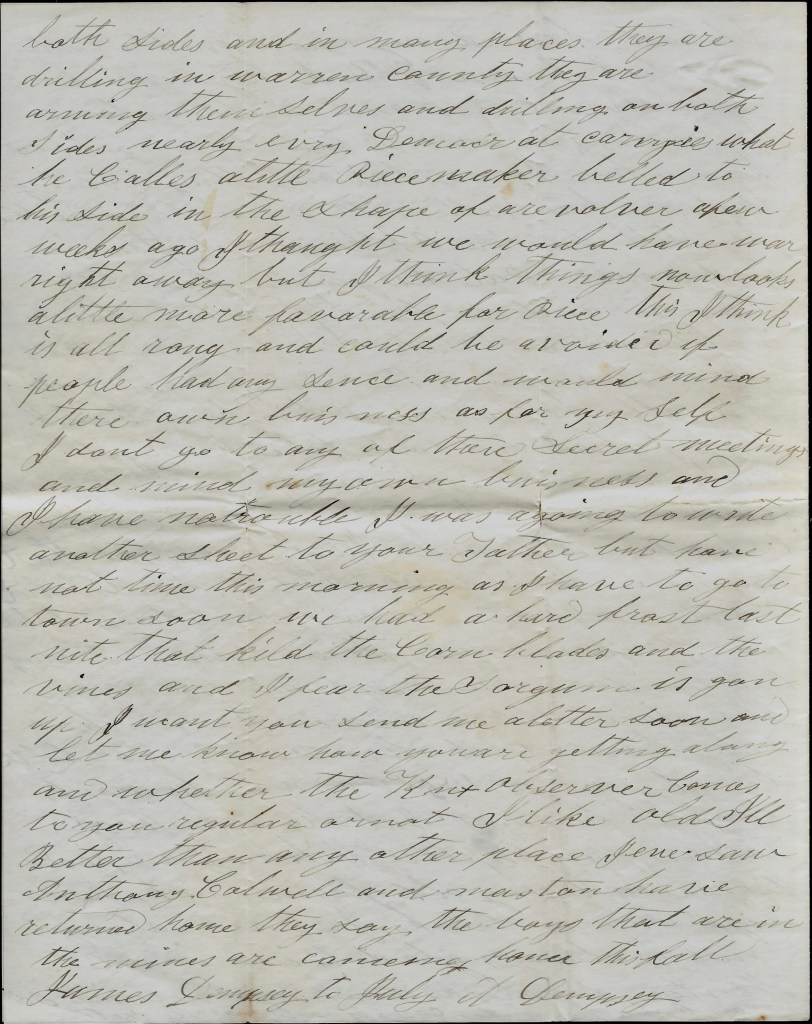 both sides and in many places they are
drilling in warren County they are
arming them selves and drilling on both
Sides nearly evry Democr at carries what
he Calles alittle Piecemaker belted to
his side in the Shape of are volver afew
weeks ago I thaught we would have war
right away but I think things now looks
alittle more favorable for Piece this I think
is all rong and could be avoided if
people had any sence and would mind
there own buisness as for my Self
I dont go to any of there Secret meetings
and mind my own buisness and
I have notrouble I was agoing to write
another sheet to your Father but have
not time this morning as I have to go to
town soon we had a hard frost last
nite that kild the Corn blades and the
vines and I fear the Sorgum is gon
up I want you send me aletter soon and
let me know how youare getting along
and whether the Knx Observer Comes
to you regular ornot I like old Ill
Better than any other place I ever saw
Anthony Colwell and maston have
returned home they say the boys that are in
the mines are comeing home this fall
James Dempsey to July A Dempsey